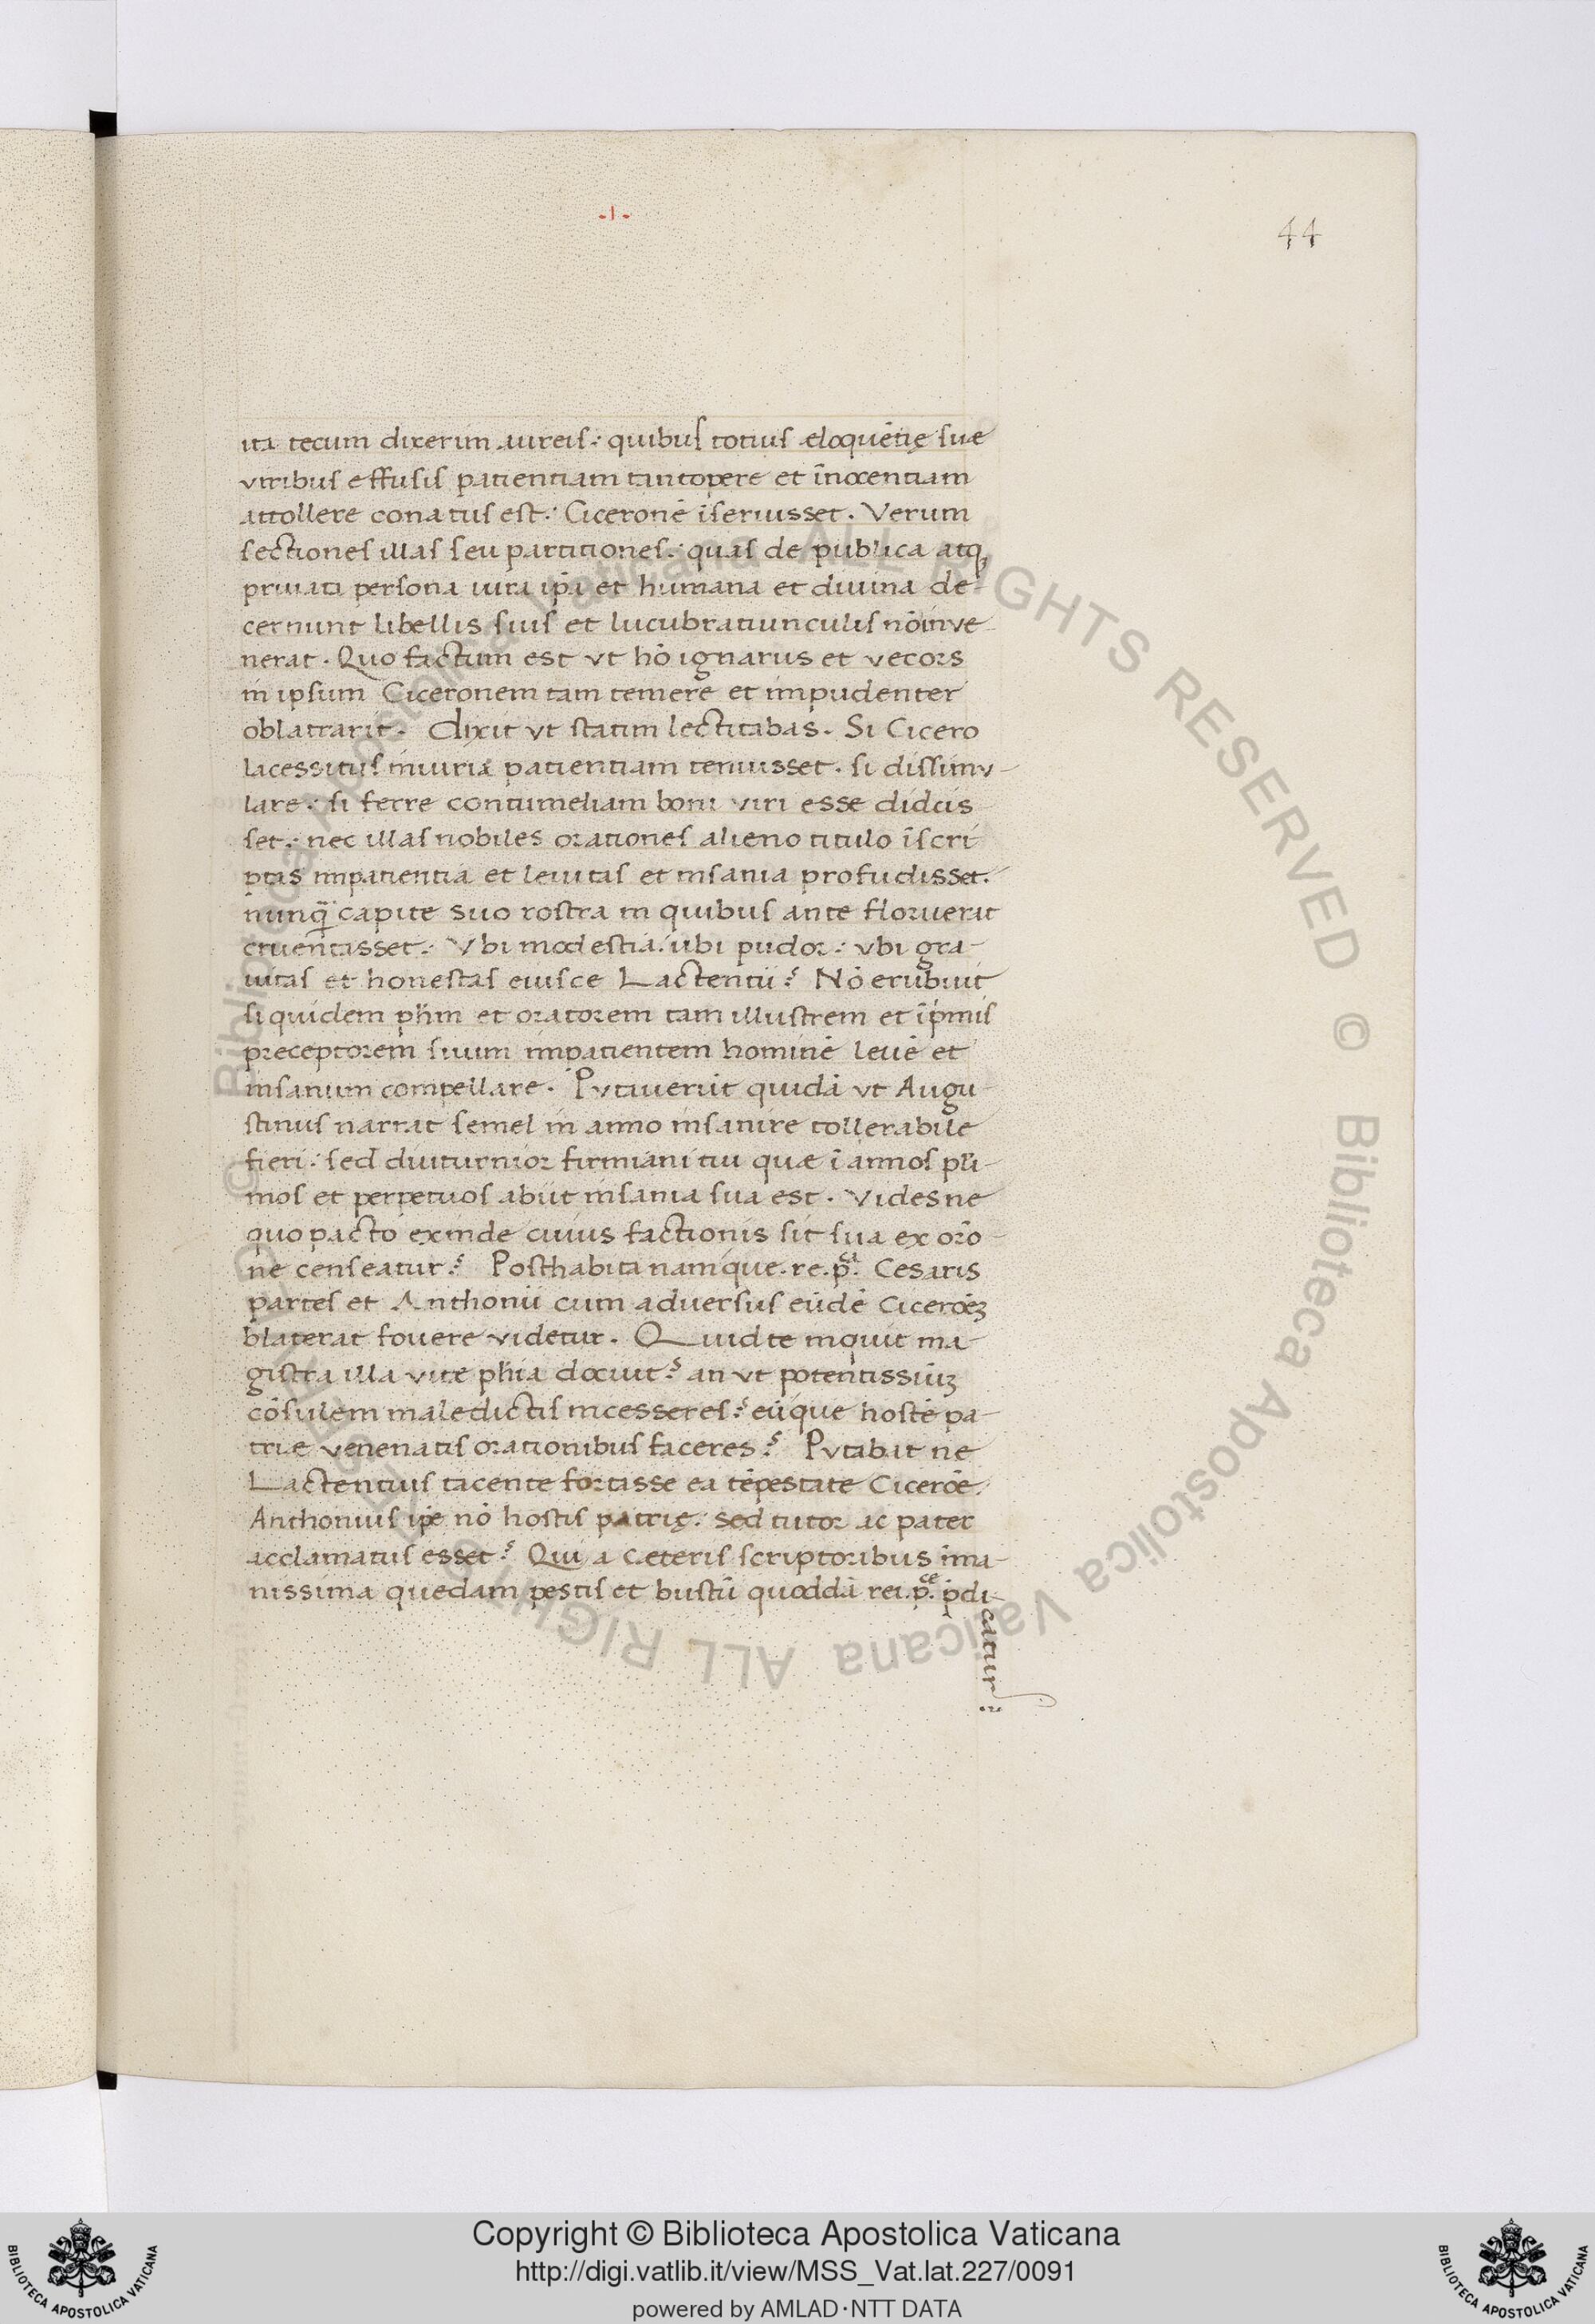 .I.
44
ita tecum dixerim aureis: quibus totius eloquētię suae
viribus effusis patientiam tantopere et īnocentiam
attollere conatus est: Ciceronē īseruisset. Verum
sectiones illas seu partitiones: quas de publica atq
privata persona iura ip̄a et humana et divina de-
cernunt libellis suis et lucubratiunculis nō inve-
nerat. Quo factum est vt hō ignarus et vecors
in ipsum Ciceronem tam temere et impudenter
oblatrarit. Dixit vt statim lectitabas. Si Cicero
lacessitus iniuria patientiam tenuisset. si dissimv-
lare: si ferre contumeliam boni viri esse didcis-
set: nec illas nobiles orationes alieno titulo īscri
ptas impatientia et levitas et insania profudisset.
nunq̄ capite suo rostra in quibus ante floruerat
cruentasset. Vbi modestia: ubi pudor: vbi gra-
vitas et honestas eiusce Lactentii? Nō erubuit
siquidem ph̄m et oratorem tam illustrem et īp̄mis
preceptorem suum impatientem hominē levē et
insanum compellare. Putaverūt quidā vt Augu-
stinus narrat semel in anno insanire tollerabile
fieri: sed diuturnior firmiani tui quae ī annos plī-
mos et perpetuos abiit insania sua est. Videsne
quo pacto exinde cuius factionis sit sua ex orō-
ne censeatur? Posthabita namque .re.p.ca Cesaris
partes et Anthonii cum adversus eūdē Cicerōēꝫ
blaterat fovere videtur. Quid te inquit ma-
gistra illa vite ph̄ia docuit? an vt potentissiūꝫ
cōsulem maledictis incesseres? eūque hostē pa-
triae venenatis orationibus faceres? Putabat ne
Lactentius tacente fortasse ea tēpestate Cicerōe.
Anthonius ip̄e nō hostis patrię: sed tutor ac pater
acclamatus esset? Qui a caeteris scriptoribus īma-
nissima quedam pestis et bustū quoddā rei.p.ce p̄di-
catur
Copyright © Biblioteca Apostolica Vaticana
http://digi.vatlib.it/view/MSS_Vat.lat.227/0091
powered by AMLAD·NTT DATA
BIBLIOTECA APOSTOLICA VATICANA
BIBLIOTECA APOSTOLICA VATICANA
© Biblioteca Apostolica Vaticana ALL RIGHTS RESERVED © Biblioteca Apostolica Vaticana ALL RIGHTS RESERVED